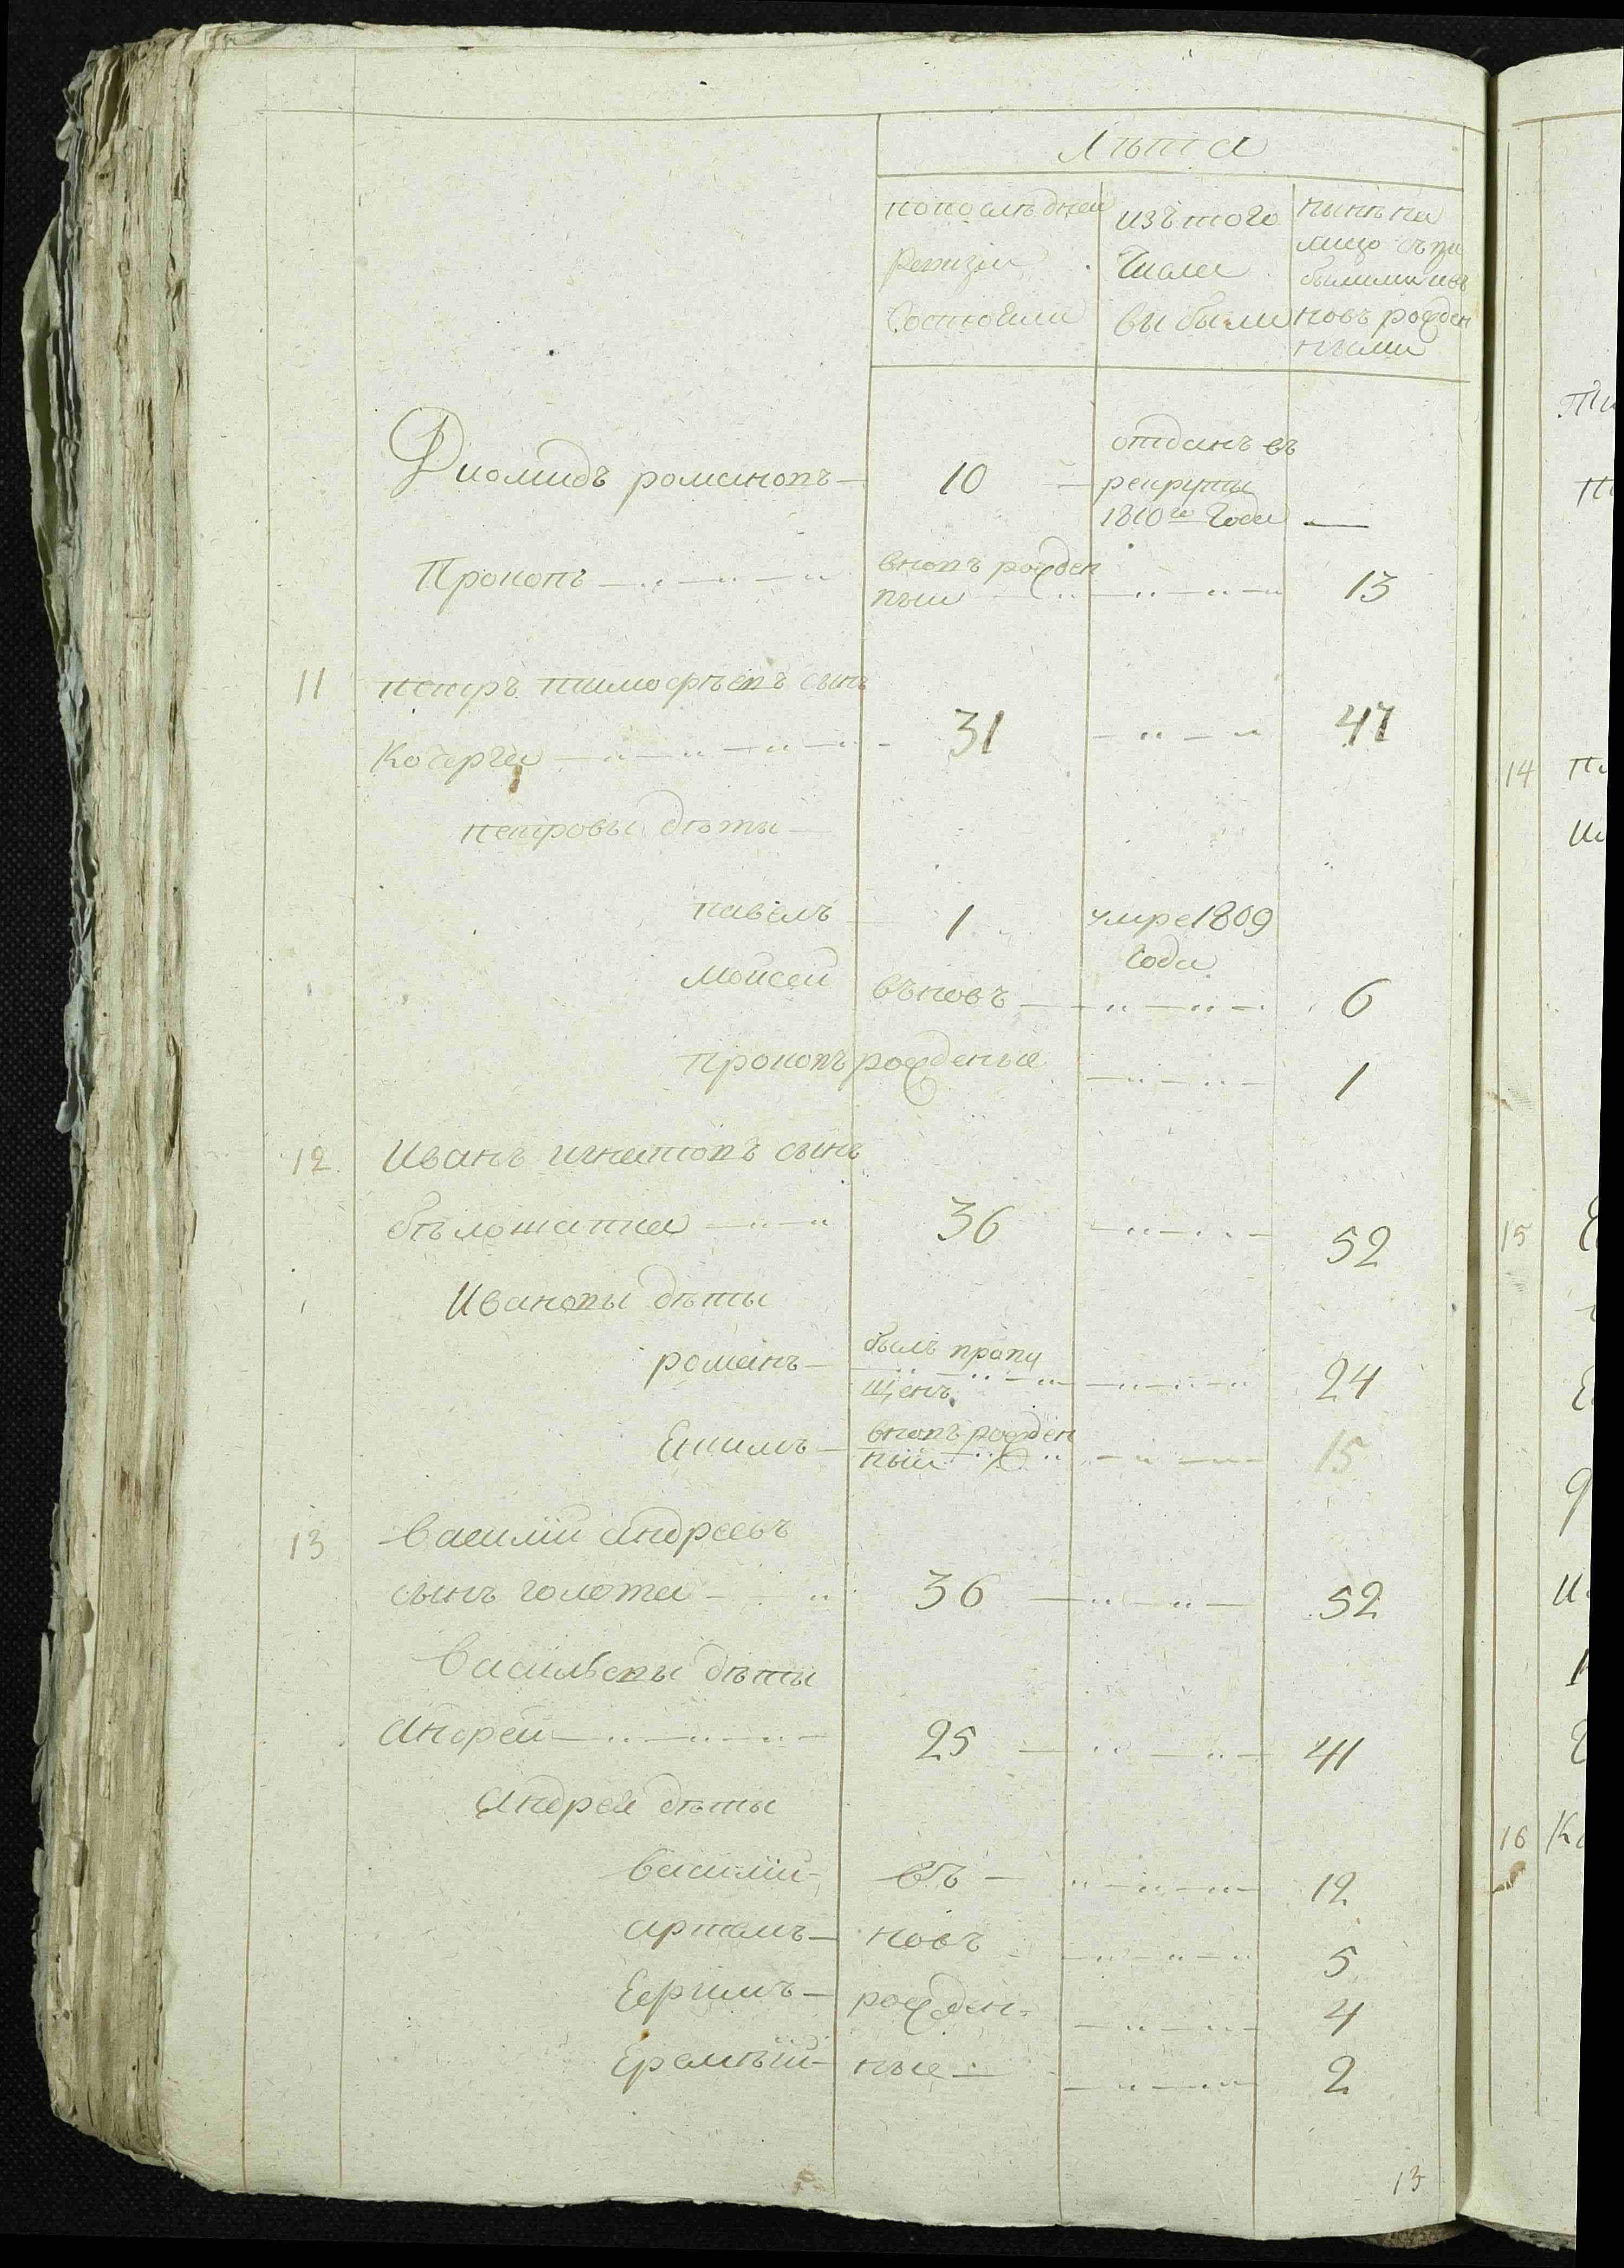 Лѣта
попослѣдней
Ревизіи
Состояли
изъ того
Числа
выбыли
нынѣ на
лицо съпри
былыми и въ
новь рожден
ными
Диомидъ романовъ — 10 —
отданъ въ
рекруты
1810го Года —
Прокопъ —
вновь рожден
ный — 13
11 петръ тимофѣевъ сынъ
Кочерга — 31 — 47
петровы дѣти —
павелъ 1 умре 1809
Года
Мойсей въновь — 6
Прокопъ рожденыя — 1
12 Иванъ игнатовъ сынъ
бѣлошапка — 36 — 52
Ивановы дѣти
романъ —
былъ пропу
щенъ — 24
Екимъ —
вновь рожден
ный — 15
13 Василій андреевъ
сынъ голота — 36 — 52
Васильевы дѣти
андрей — 25 — 41
андрея дѣти
василій — въ — 12
артемъ — новь — 5
Ефимъ — рожден- — 4
Еремѣй — ные — 2
13
14
15
16